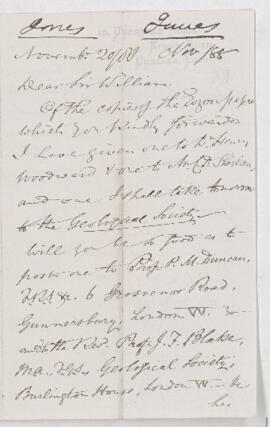 Jones James
November 20/88 Nov/88
Dear Sir William,
Of the copies of the Eozoon paper
which you kindly forwarded
I have given one to Dr. Henry
Woodward & one to Mr. C. D.
and one I shall take tomorrow
to the Geological Society.
Will you be so good as to
post one to Prof. P. M. Duncan,
6 Grosvenor Road,
Gunnersbury, London W.
and to the Rev. Prof. J. F. Blake,
M.A. &c., Geological Society,
Burlington House, London. W. —